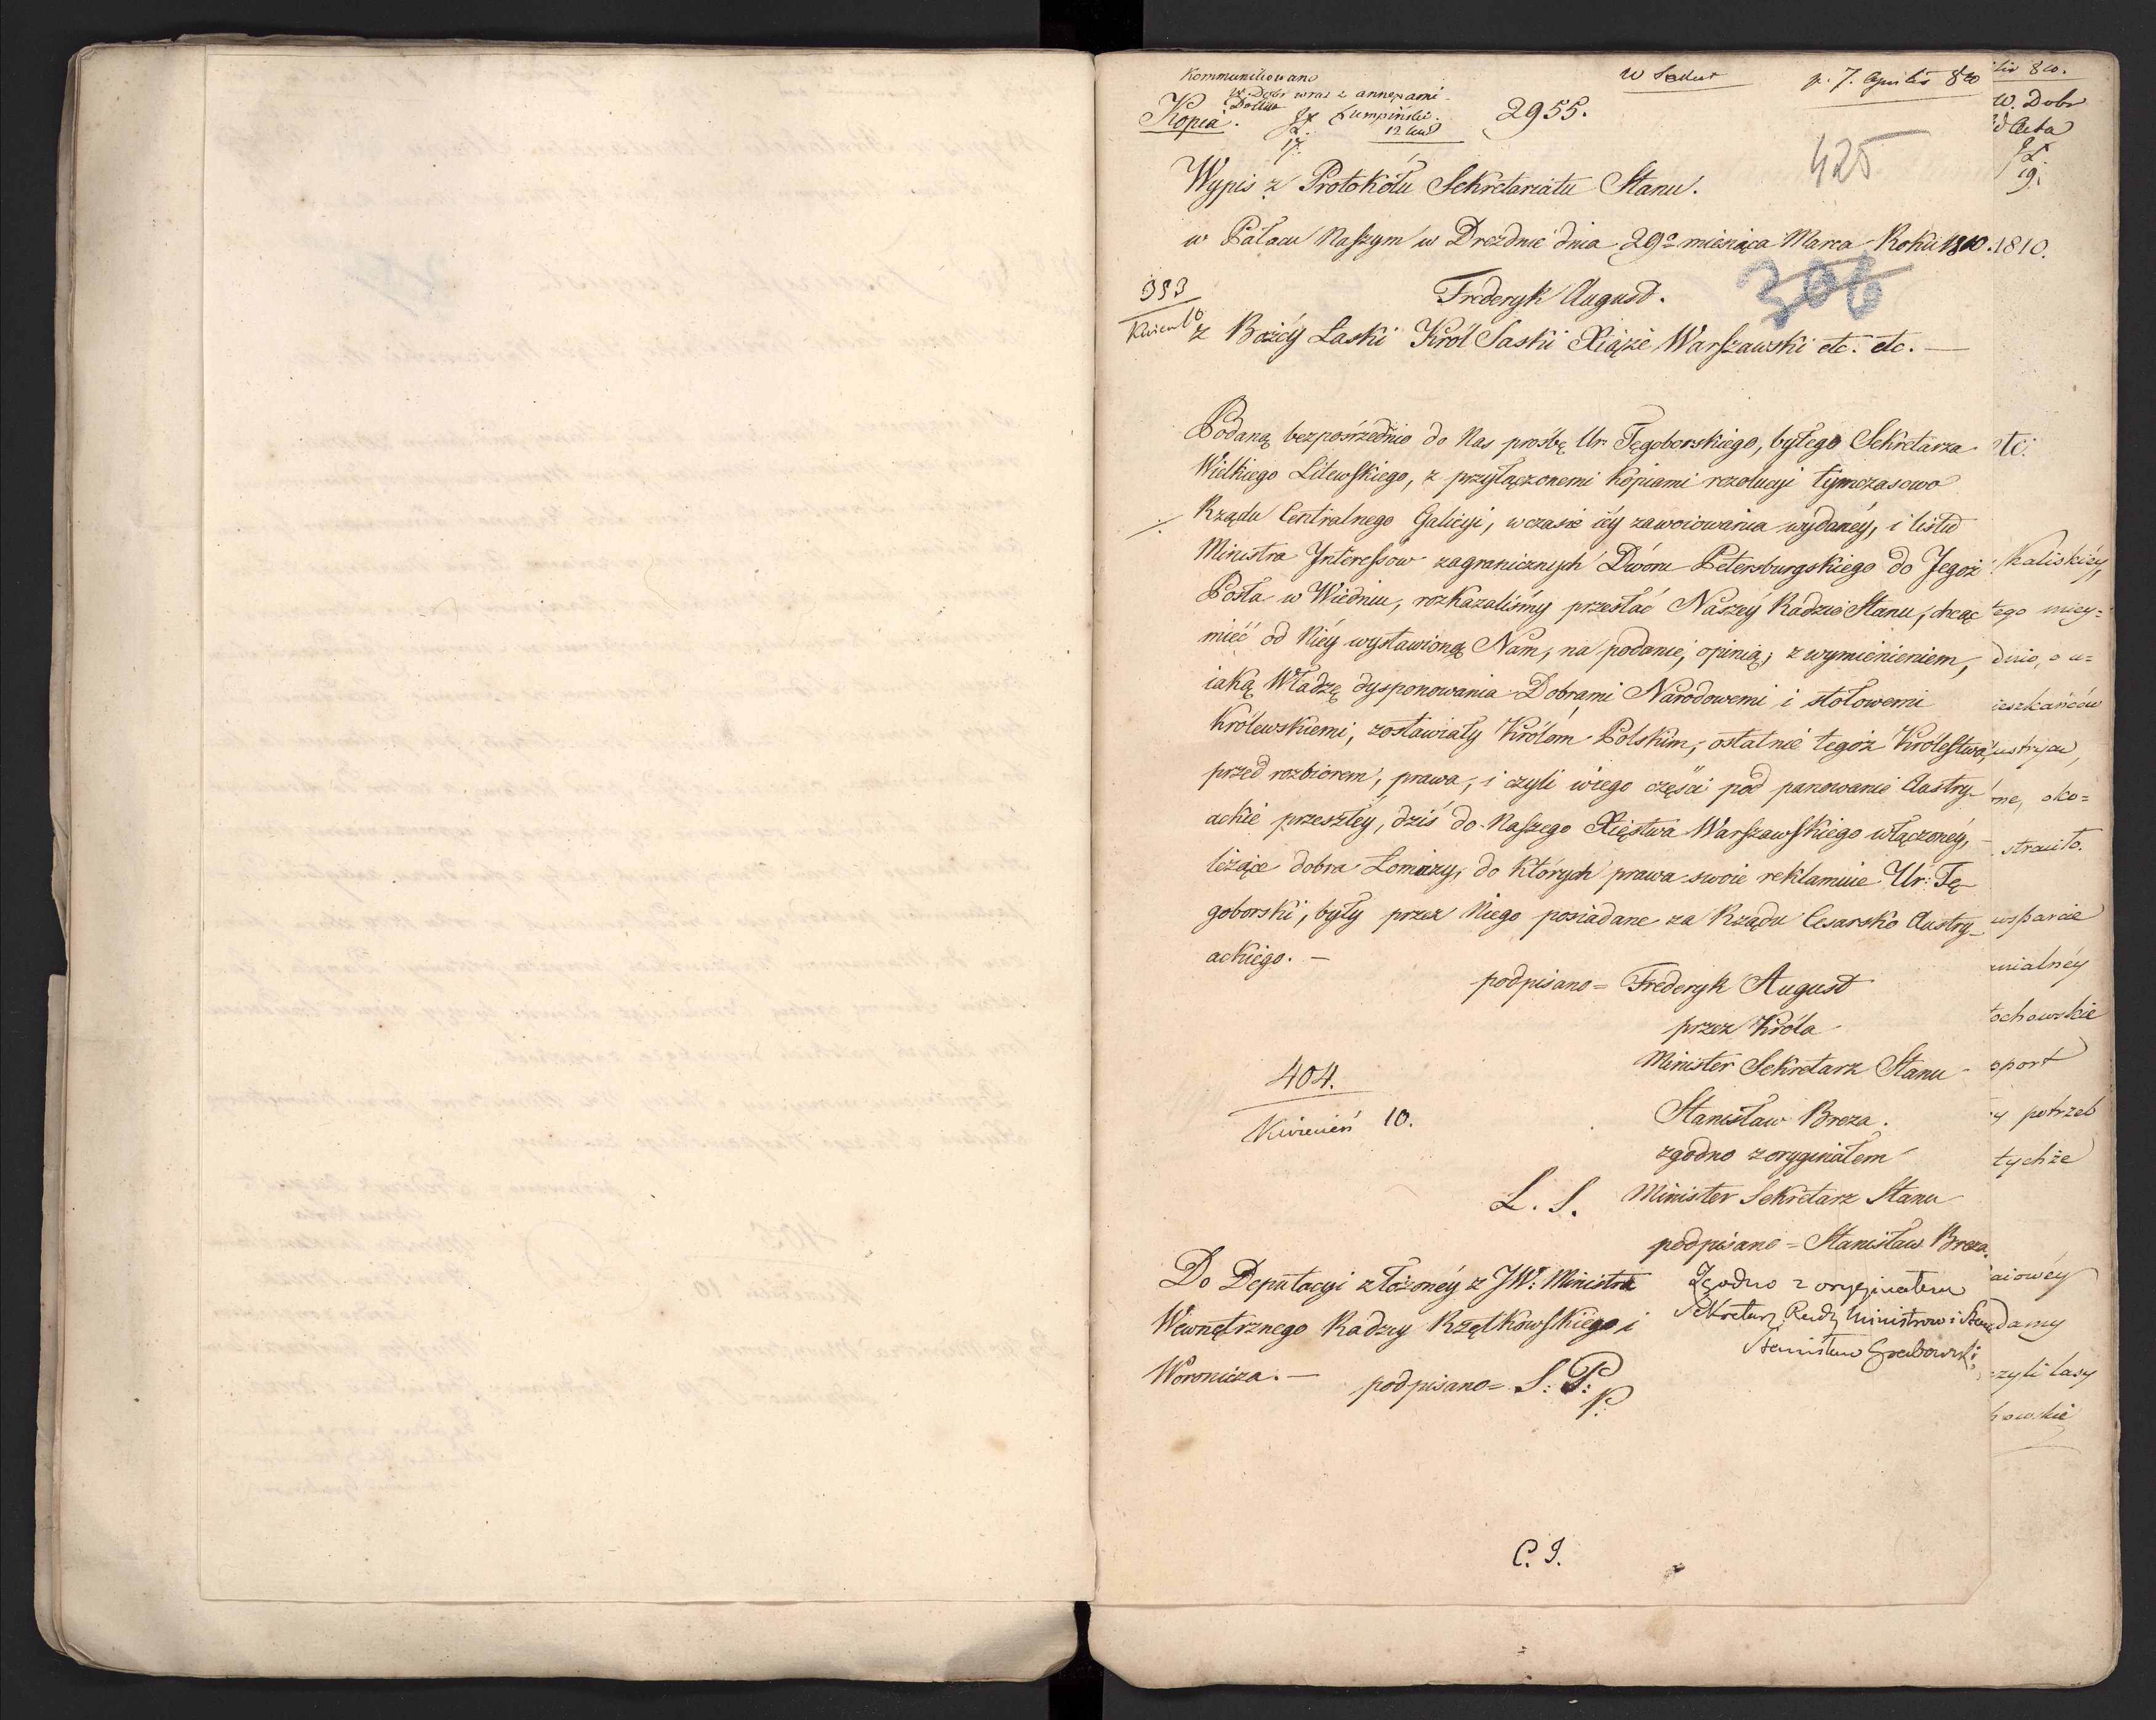 Kommunikowano
W. Dobr wraz z annexami
Kopia.
Lumpiński.
2955.
p. 7. Aprilis 810
425
Wypis z Protokółu Sekretariatu Stanu.
w Pałacu Naszym w Dreźnie dnia 29º miesiąca Marca Roku 1810.
306
Frederyk August.
393
Kwiecień 10
z Bożéy Łaski Król Saski Xiąże Warszawski etc. etc. —
Podaną bezpośrzednio do Nas prośbę Ur: Tęgoborskiego, byłego Sekretarza
Wielkiego Litewskiego, z przyłączonemi kopiami rezolucyi tymczasowo
Rządu Centralnego Galicyi, wczasie iéy zawoiowania wydanéy, i listu
Ministra Interessow zagranicznych Dworu Petersburgskiego do Jegoż
Posła w Wiedniu, rozkazaliśmy przesłać Naszéy Radzie Stanu, chcąc
mieć od Niéy wystawioną Nam, na podanie, opinią, z wymienieniem,
iaką Władzę dysponowania Dobrami Narodowemi i stołowemi
Królewskiemi, zostawiały Królom Polskim, ostatnie tegoż Królestwa,
przed rozbiorem, prawa, i czyli w iego części pod panowanie Austry-
ackie przeszłéy, dziś do Naszego Xięstwa Warszawskiego włączonéy,
leżące dobra Łomazy, do których prawa swoie reklamuie Ur: Tę-
goborski, były przez Niego posiadane za Rządu Cesarsko Austry-
ackiego. —
podpisano = Frederyk August
przez Króla
Minister Sekretarz Stanu
404.
Kwiecień 10.
Stanisław Breza.
zgodno z oryginałem
L. S. Minister Sekretarz Stanu
podpisano = Stanisław Breza.
Do Deputacyi złożonéy z JW: Ministra
Wewnętrznego Radzcy Rzętkowskiego i
Woronicza. — podpisano = S: P:
P.
Zgodno z oryginałem
Sekretarz Rady Ministrow i Stanu
Stanisław Grabowski
C. J.
810.
W. Dobr
Acta
19.
1810.
etc:
Kaliskiéy,
tego miey=
ieszkańców
oko=
wsparcie
ochowskie
port
potrzeb
tychże
damy
czyli lasy
howskie